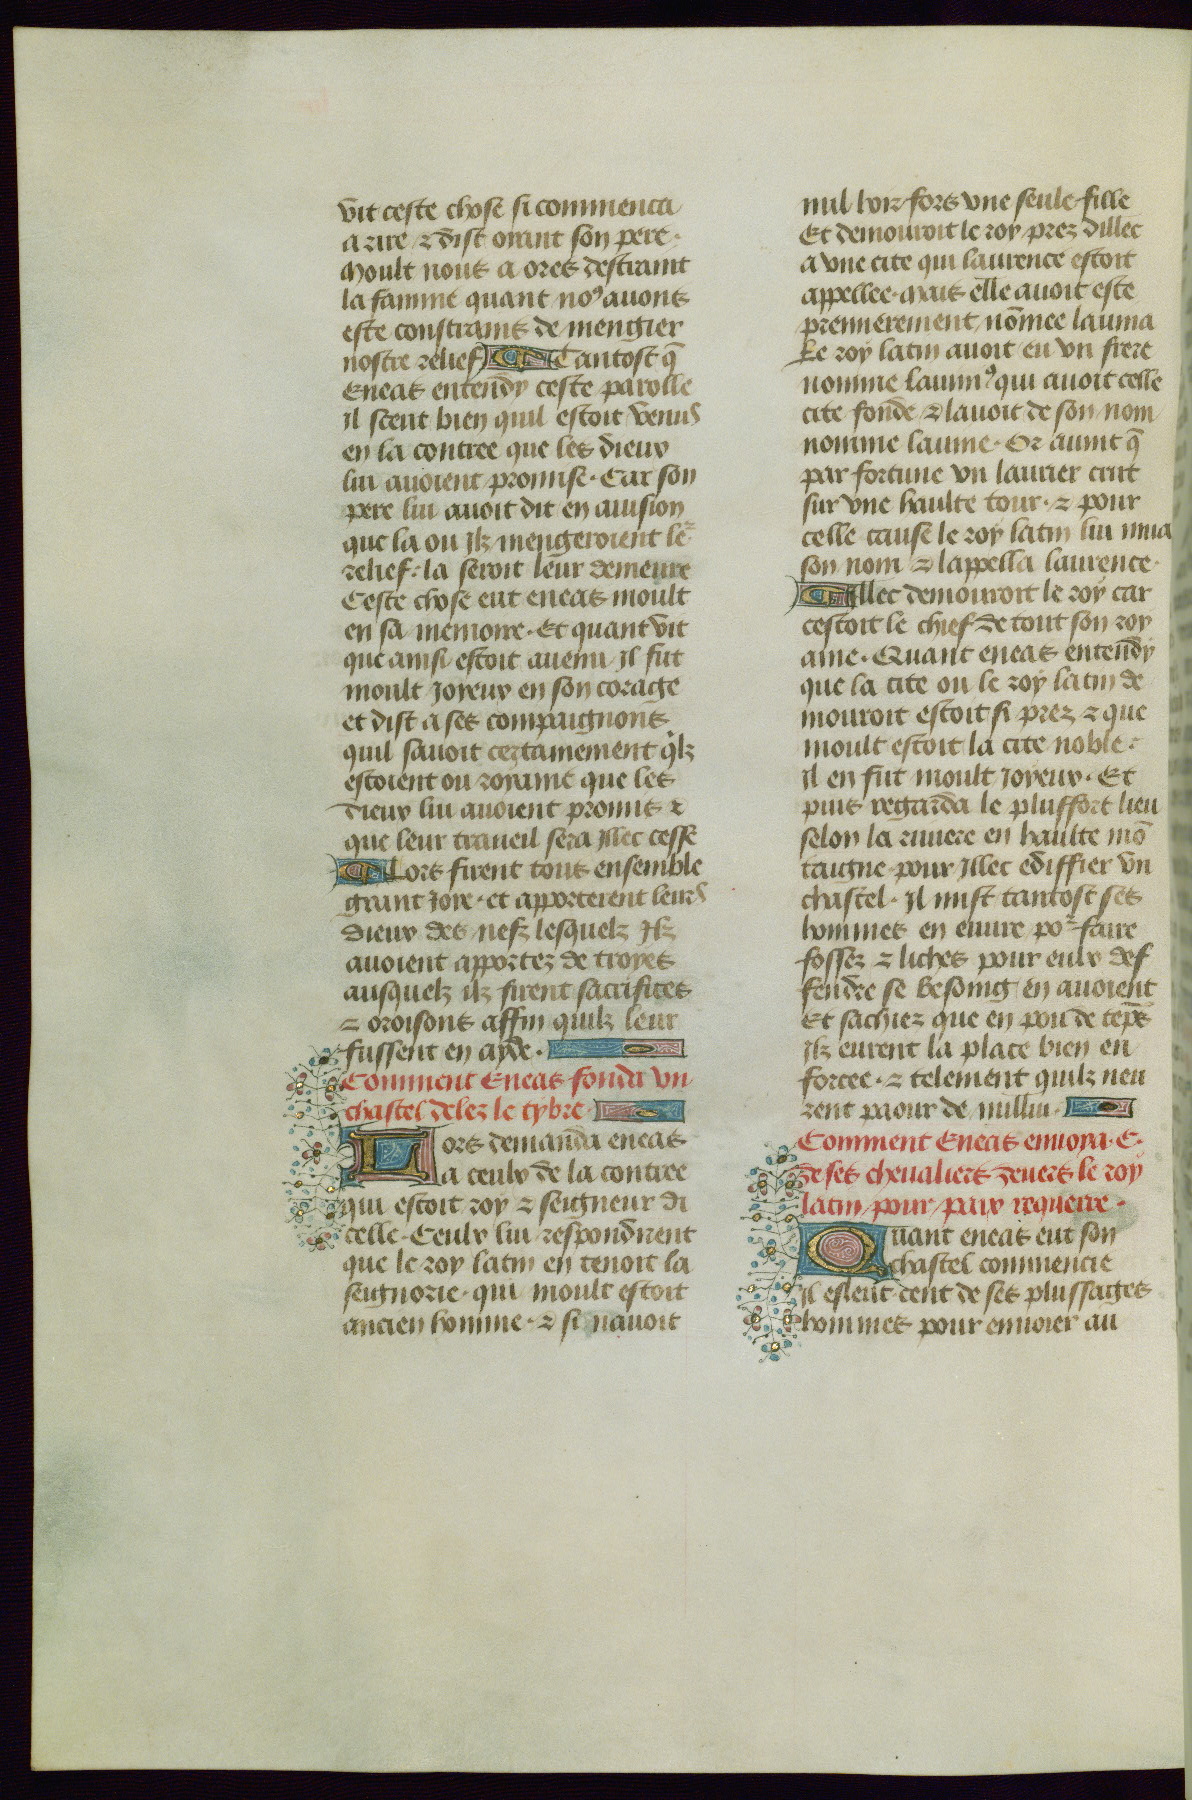 vit ceste chose si commenca
a rire ⁊ dist oyant son pere·
Moult nous a ores destraint
la famine quant no⁹ auons
este constrains de mengier
nostre relief ¶ Tantost q̄
Eneas entendy ceste parolle
Il sceut bien quil estoit venus
en la contree que les dieux
lui auoient promise· Car son
pere lui auoit dit en auision
que la ou ilz mengeroient le᷑
relief· la seroit leur demeure
Ceste chose eut eneas moult
en sa memoire· Et quant vit
que ainsi estoit auenu Il fut
moult Ioyeux en son corage
et dist a ses compaignons
quil sauoit certainement q̓lz
estoient ou royame que les
dieux lui auoient promis ⁊
que leur traueil sera Illec cesse
¶ Lors firent tous ensemble
grant Ioye· et apporterent leurs
dieux des nefz lesquelz Ilz
auoient apportez de troyes
ausquelz ilz firent sacrifices
⁊ oroisons affin quilz leur
fussent en ayde·
Comment Eneas fonda vn
chastel delez le tybre·
Lors demanda eneas
a ceulx de la contree
qui estoit roy ⁊ seigneur di
celle· Ceulx lui respondirent
que le roy latin en tenoit la
seignorie· qui moult estoit
ancien homme· ⁊ si nauoit
nul hoir fors vne seule fille
Et demouroit le roy prez dillec
a vne cite qui laurence estoit
appellee· mais elle auoit este
premierement nōmee lauina
Le roy latin auoit eu vn frere
nomme lauin⁹ qui auoit celle
cite fonde ⁊ lauoit de son nom
nomme lauine· Or auint q̄
par fortune vn laurier crut
sur vne haulte tour· ⁊ pour
celle cause le roy latin lui mua
son nom ⁊ lappella laurence·
¶ Illec demouroit le roy car
cestoit le chief de tout son roy
ame· Quant eneas entendy
que la cite ou le roy latin de
mouroit estoit si prez ⁊ que
moult estoit la cite noble·
il en fut moult Ioyeux· Et
puis regarda le plussfort lieu
selon la riuiere en haulte mō
taigne pour Illec ediffier vn
chastel· Il mist tantost ses
hommes en euure po᷑ faire
fossez ⁊ liches pour eulx def
fendre se besoing en auoient
Et sachiez que en pou de tēps
Ilz eurent la place bien en
forcee· ⁊ telement quilz neu
rent paour de nullui·
Comment Eneas enuoya· C·
de ses cheualiers deuers le roy
latin pour paix requerre·
Quant eneas eut son
chastel commencie
Il esleut cent de ses plussages
hommes pour enuoier au